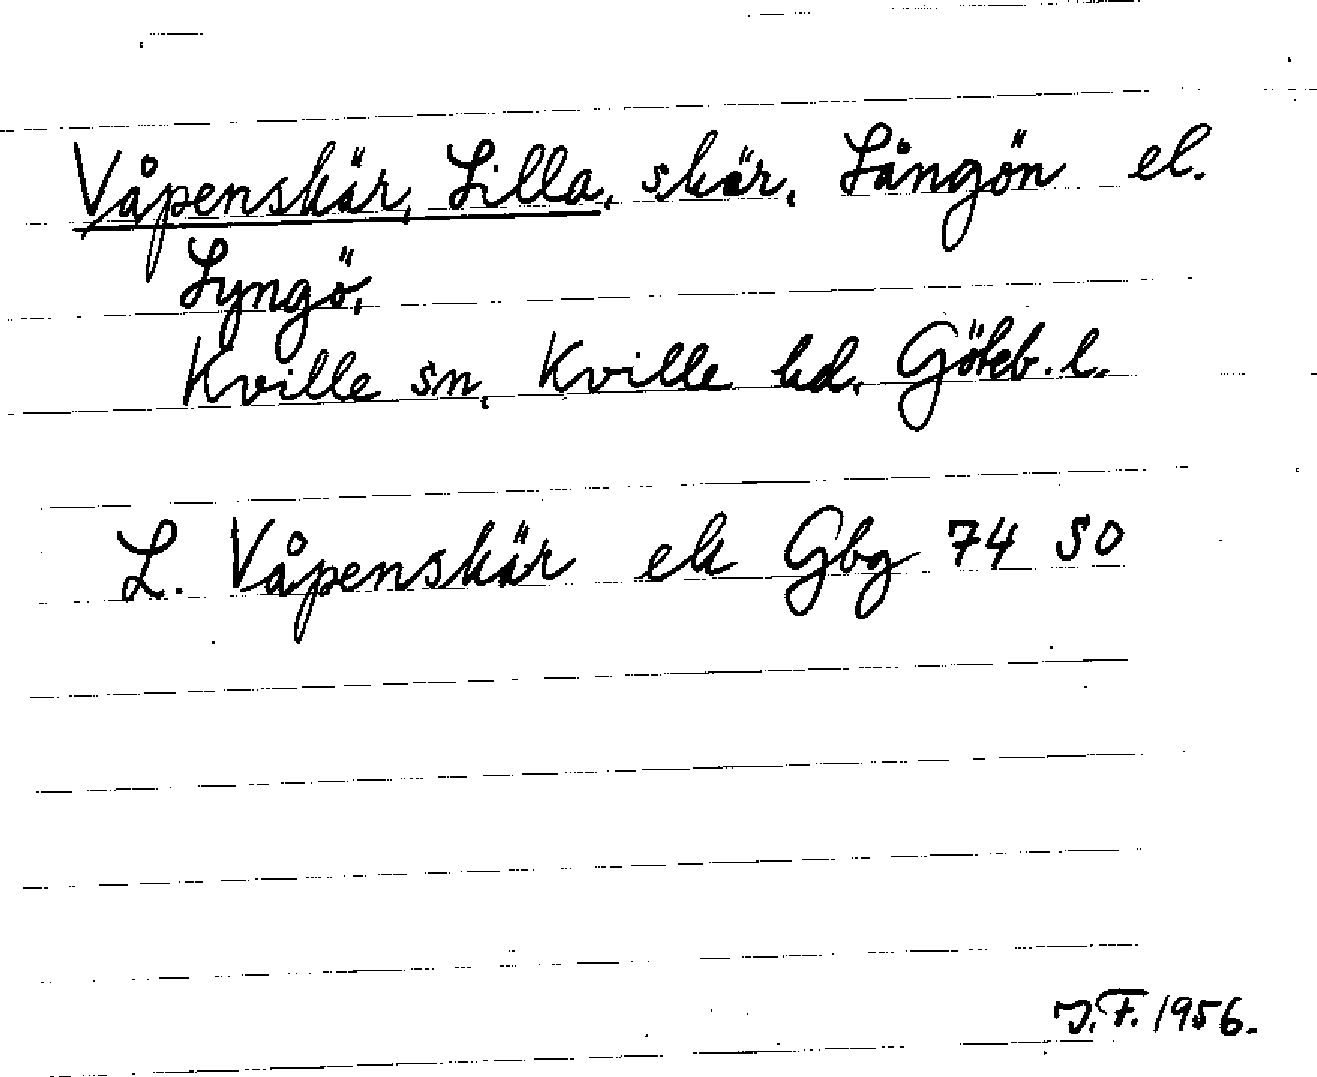 Våpenskär, Lilla, skär, Långön el.
Lyngö,
Kville sn, Kville hd, Göteb. l.
L. Våpenskär ek Gbg 74 SO
J.F. 1956.